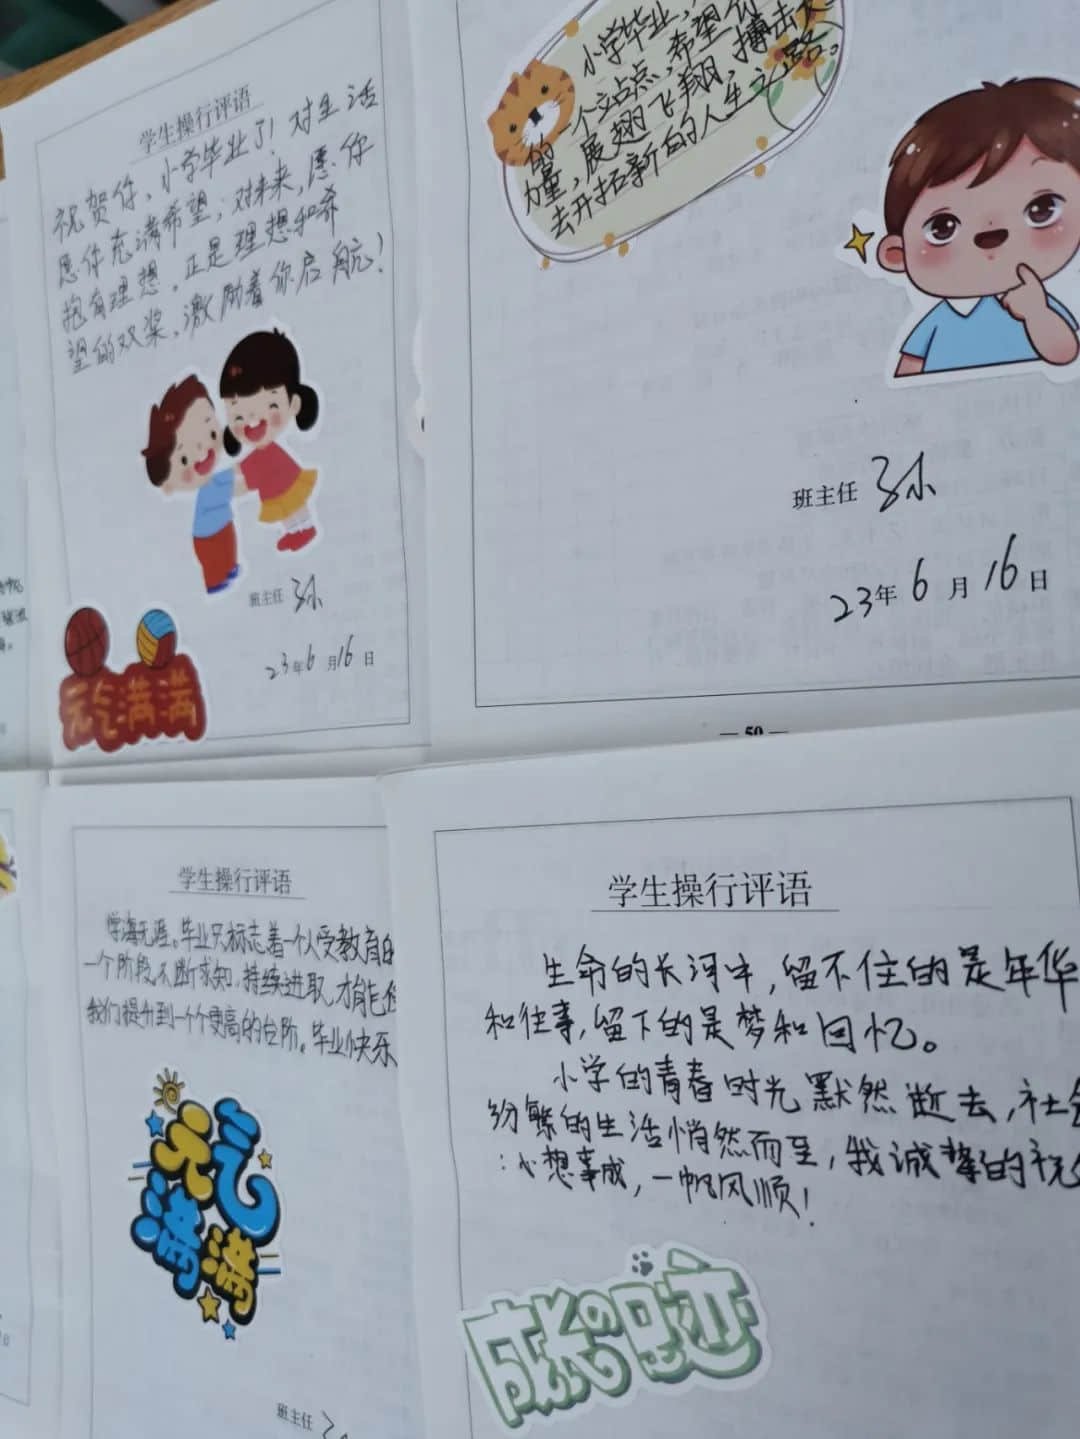 学生操行评语
祝贺你、小学毕业了！对生活
愿你充满希望；对未来，愿你
抱有理想。正是理想和希
望的双桨，激励着你启航！
班主任 孙
23年6月16日
元气满满
小学毕业，
的一个交点点，希望你
力量，展翅飞翔，搏击
去开拓新的人生之路。
班主任 孙
23年6月16日
— 50 —
学生操行评语
学海无涯。毕业只标志着一个人受教育的
一个阶段，不断求知，持续进取，才能
我们提升到一个个更高的台阶。毕业快乐
元气满满
班主任
学生操行评语
生命的长河中，留不住的是年华
和往事，留下的是梦和回忆。
小学的青春时光默然逝去，社会
纷繁的生活悄然而至，我诚挚的祝
：心想事成，一帆风顺！
成长の足迹